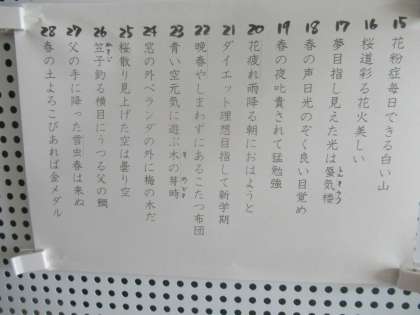 15 花粉症毎日できる白い山
16 桜道彩る花火美しい
17 夢目指し見えた光は蜃気楼
しんきろう
18 春の声日光のぞく良い目覚め
19 春の夜叱責されて猛勉強
20 花疲れ雨降る朝におはようと
21 ダイエット理想目指して新学期
22 晩春やしまわずにあるこたつ布団
23 青い空元気に遊ぶ木の芽時
き の めどき
24 窓の外ベランダの外に梅の木だ
25 桜散り見上げた空は曇り空
26 笠子釣る横目にうつる父の鯛
かさご
27 父の手に降った雪虫春は来ぬ
28 春の土よろこびあれば金メダル